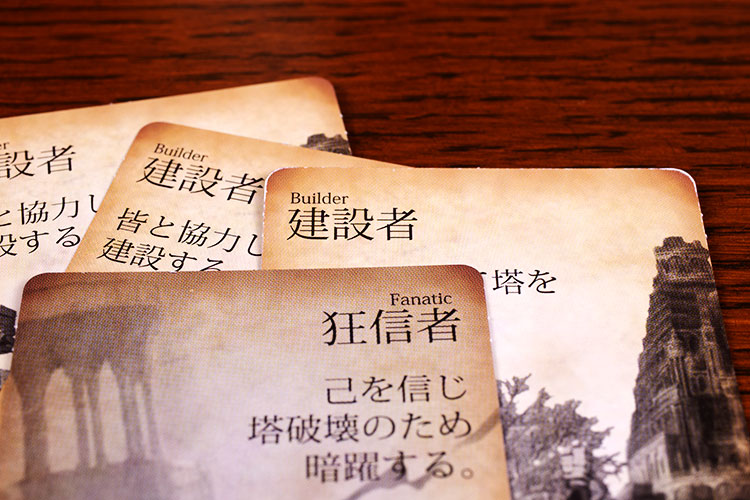 er
設者
と協力し
設する
Builder
建設者
皆と協力し
建設する
Builder
建設者
塔を
Fanatic
狂信者
己を信じ
塔破壊のため
暗躍する。